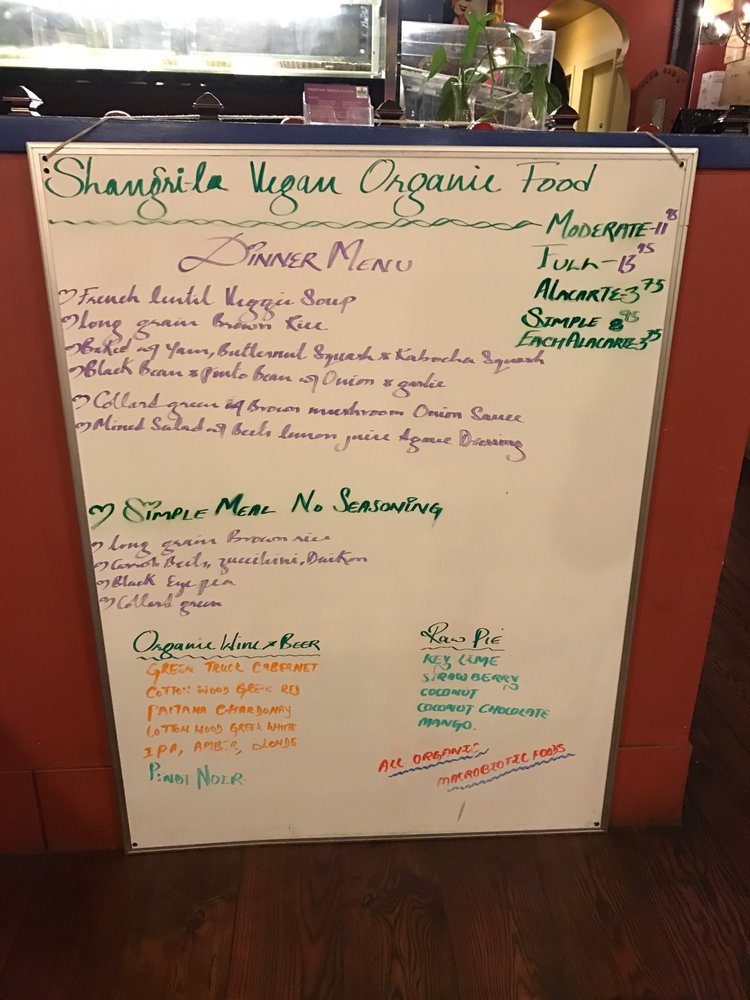 Shangri-la Vegan Organic Food
MODERATE-11 95
FULL-13 95
ALACARTE-3 75
SIMPLE 8 95
EACH ALACARTE-3 75
DINNER MENU
French lentil Veggie Soup
Long grain Brown Rice
Baked w/ Yam, Butternut Squash & Kabocha Squash
Black Bean & pinto Bean w/ Onion & garlic
Collard green w/ Brown mushroom Onion Sauce
Mixed Salad w/ Beets lemon juice Agave Dressing
SIMPLE MEAL NO SEASONING
Long grain Brown rice
Carrots Beets, zucchini, Daikon
Black Eye pea
Collard green
ORGANIC WINE & BEER
GREEN TRUCK CABERNET
COTTON WOOD GREEK RED
PAITANA CHARDONAY
COTTON WOOD GREEK WHITE
IPA, AMBER, BLONDE
PINOT NOIR
RAW PIE
KEY LIME
STRAWBERRY
COCONUT
COCONUT CHOCOLATE
MANGO.
ALL ORGANIC
MACROBIOTIC FOODS